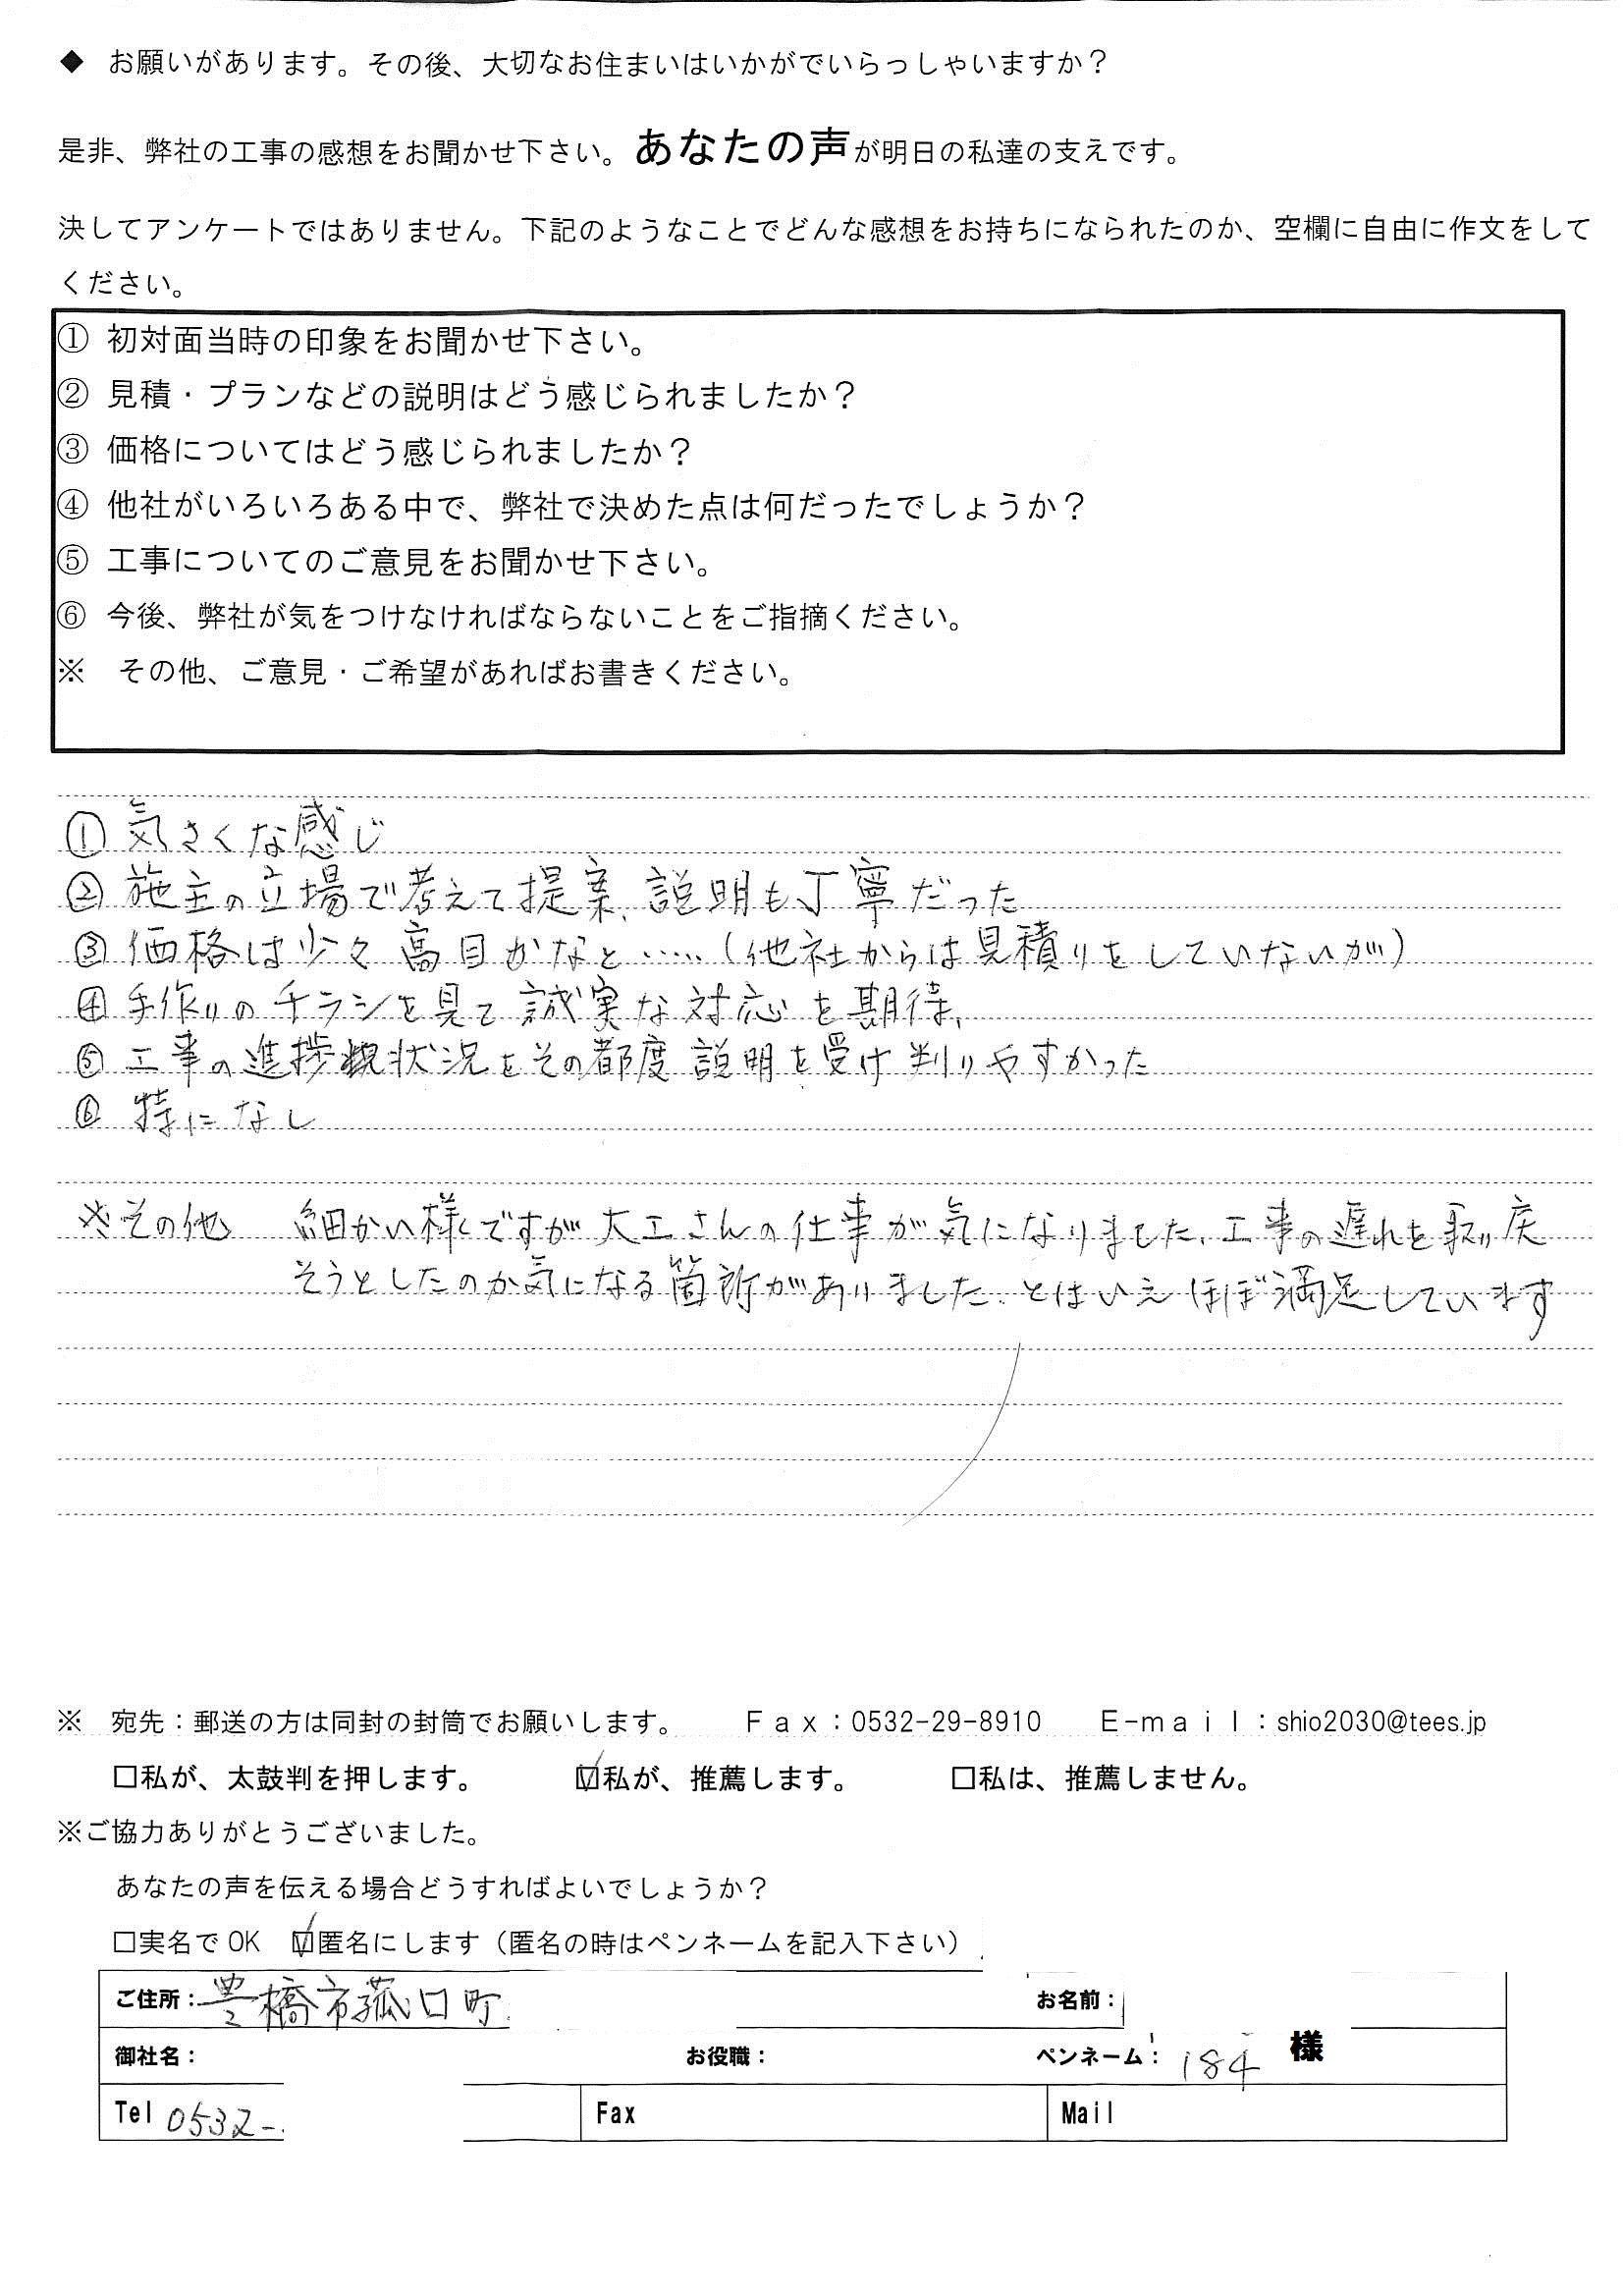 ◆ お願いがあります。その後、大切なお住まいはいかがでいらっしゃいますか?
是非、弊社の工事の感想をお聞かせ下さい。あなたの声が明日の私達の支えです。
決してアンケートではありません。下記のようなことでどんな感想をお持ちになられたのか、空欄に自由に作文をして
ください。
① 初対面当時の印象をお聞かせ下さい。
② 見積・プランなどの説明はどう感じられましたか?
③ 価格についてはどう感じられましたか?
④ 他社がいろいろある中で、弊社で決めた点は何だったでしょうか?
⑤ 工事についてのご意見をお聞かせ下さい。
⑥ 今後、弊社が気をつけなければならないことをご指摘ください。
※ その他、ご意見・ご希望があればお書きください。
① 気さくな感じ
② 施主の立場で考えて提案、説明も丁寧だった
③ 価格は少々高目かなと……(他社からは見積りをしていないが)
④ 手作りのチラシを見て誠実な対応を期待、
⑤ 工事の進捗状況をその都度説明を受け判りやすかった
⑥ 特になし
※その他 細かい様ですが大工さんの仕事が気になりました、工事の遅れを取り戻
そうとしたのか気になる箇所がありました、とはいえほぼ満足しています
※ 宛先:郵送の方は同封の封筒でお願いします。 Fax:0532-29-8910 E-mail:shio2030@tees.jp
□私が、太鼓判を押します。 ☑私が、推薦します。 □私は、推薦しません。
※ご協力ありがとうございました。
あなたの声を伝える場合どうすればよいでしょうか?
□実名でOK ☑匿名にします(匿名の時はペンネームを記入下さい)
ご住所:豊橋市菰口町 お名前:
御社名: お役職: ペンネーム:184 様
Tel 0532- Fax Mail